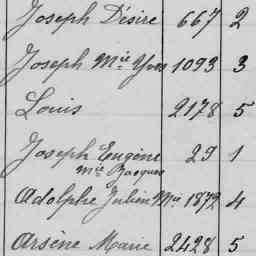 Joseph Désiré 667 2
Joseph Mie Yves 1093 3
Louis 2178 5
Joseph Eugène 29 1
Mie Jacques
Adolphe Julien Mie 1872 4
Arsène Marie 2428 5